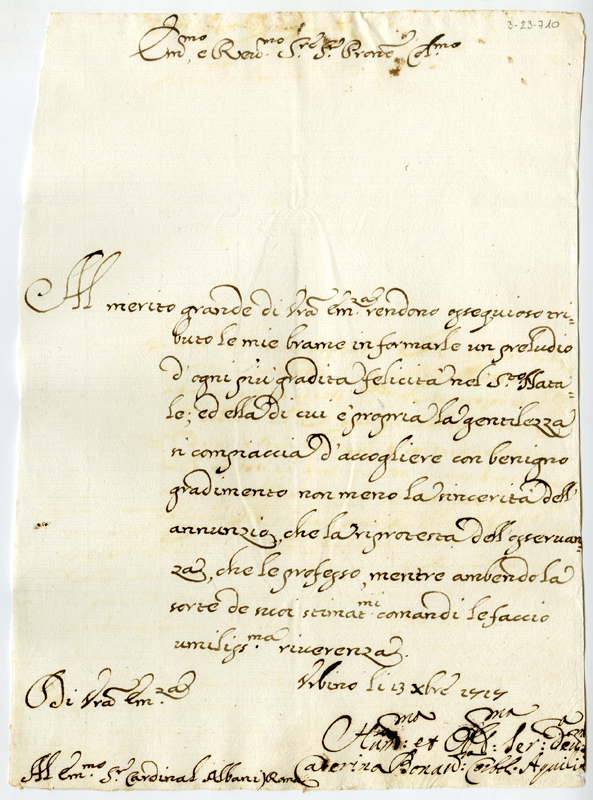 3-23-710
Em.mo e Rever.mo S.re S.r Prone Col.mo
Al merito grande di Vra Em.za rendono ossequioso tri=
buto le mie brame in formarle un preludio
d'ogni più gradita felicità nel S.to Nata=
le; ed ella di cui è propria la gentilezza
si compiaccia d'accogliere con benigno
gradimento non meno la sincerità dell'
annunzio, che la riprotesta dell'osservan=
za, che le professo, mentre ambendo la
sorte de suoi stimat.mi comandi le faccio
umiliss.ma riverenza.
Di Vra Em.za
Urbino li 13 Xbre 1717
Hum.ma et Obl.ma Ser: Deu.ma
Al Em.mo S.r Cardinal Albani Roma
Caterina Bonav: